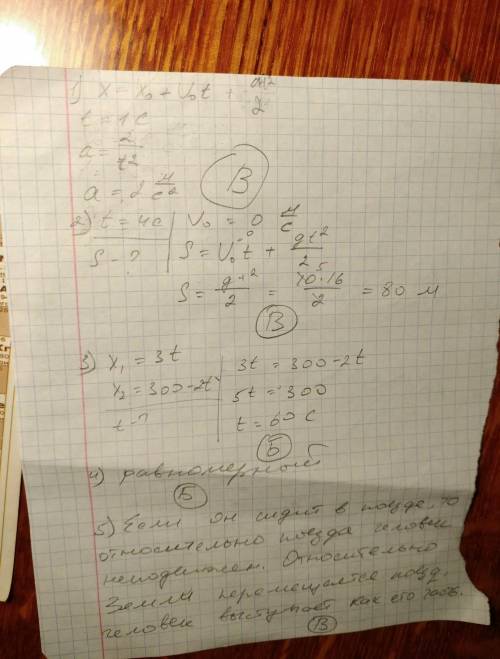 1) x = x₀ + v₀t + at²/2
t = 1 c
a = 2/t²
a = 2 м/с²
В
2) t = 4c | V₀ = 0 м/с
S - ? S = V₀t + gt²/2
S = gt²/2 = 10·16/2 = 80 м
5
0
В
3) x₁ = 3t | 3t = 300 - 2t
x₂ = 300 - 2t | 5t = 300
t - ? | t = 60 c
Б
4) равномерный
Б
5) Если он сидит в поезде, то
относительно поезда человек
неподвижен. Относительно
Земли перемещается поезд,
человек выступает как его часть.
В